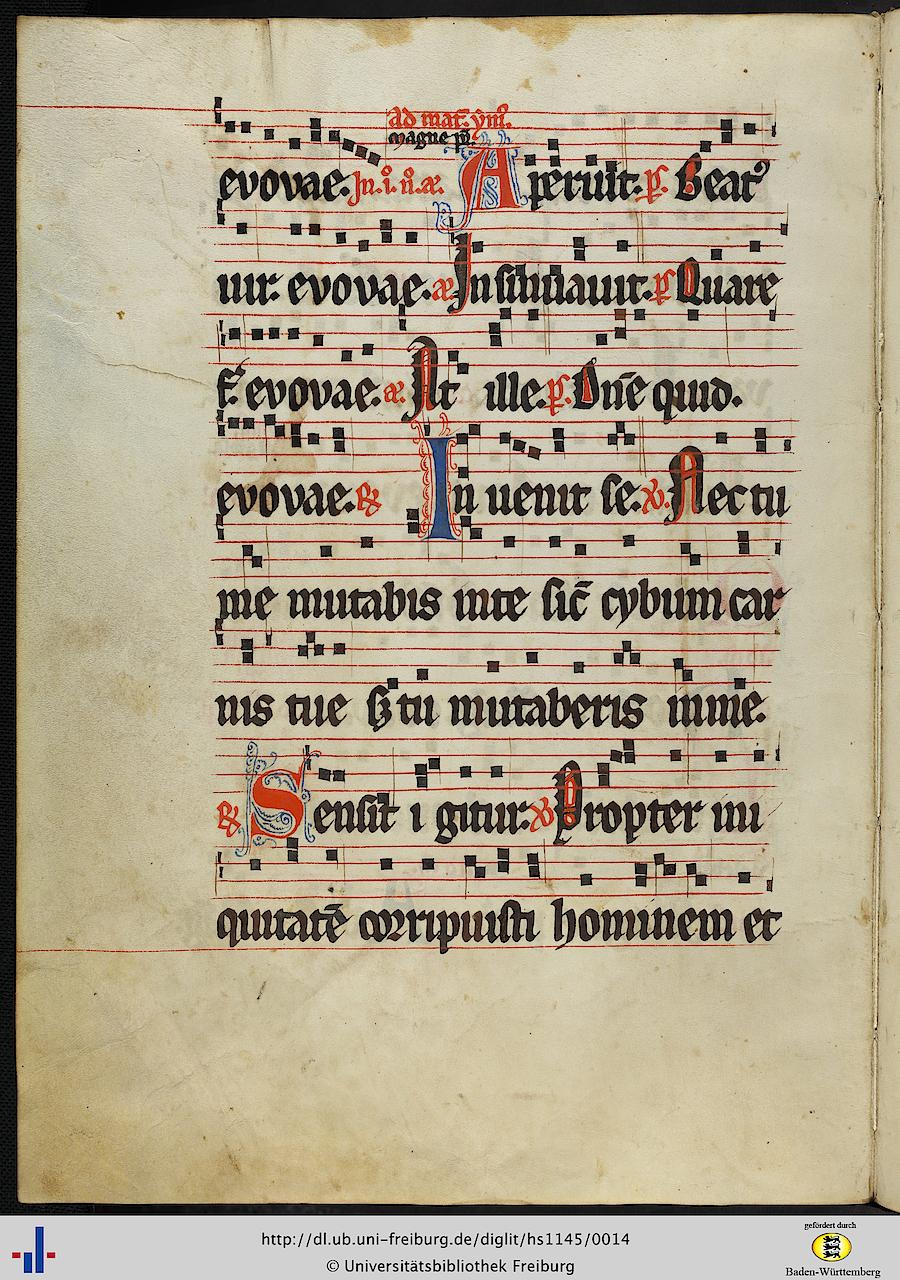 ad mat. ym̄.
magne p̄r.
evovae. Jn .i. n̊. æ. Aperuit. p̄s. Beat⁹
uir. evovae. æ Insinuauit. p̄s Quare
f̄r. evovae. æ. At ille. p̄s. Dn̄e quid.
evovae. ℟ Inuenit se. ℣. Nec tu
me mutabis in te sic̄ cybum car
nis tue sꝫ tu mutaberis in me.
℟ Sensit igitur. ℣ Propter ini
quitatē corripuisti hominem et
http://dl.ub.uni-freiburg.de/diglit/hs1145/0014
© Universitätsbibliothek Freiburg
gefördert durch
Baden-Württemberg